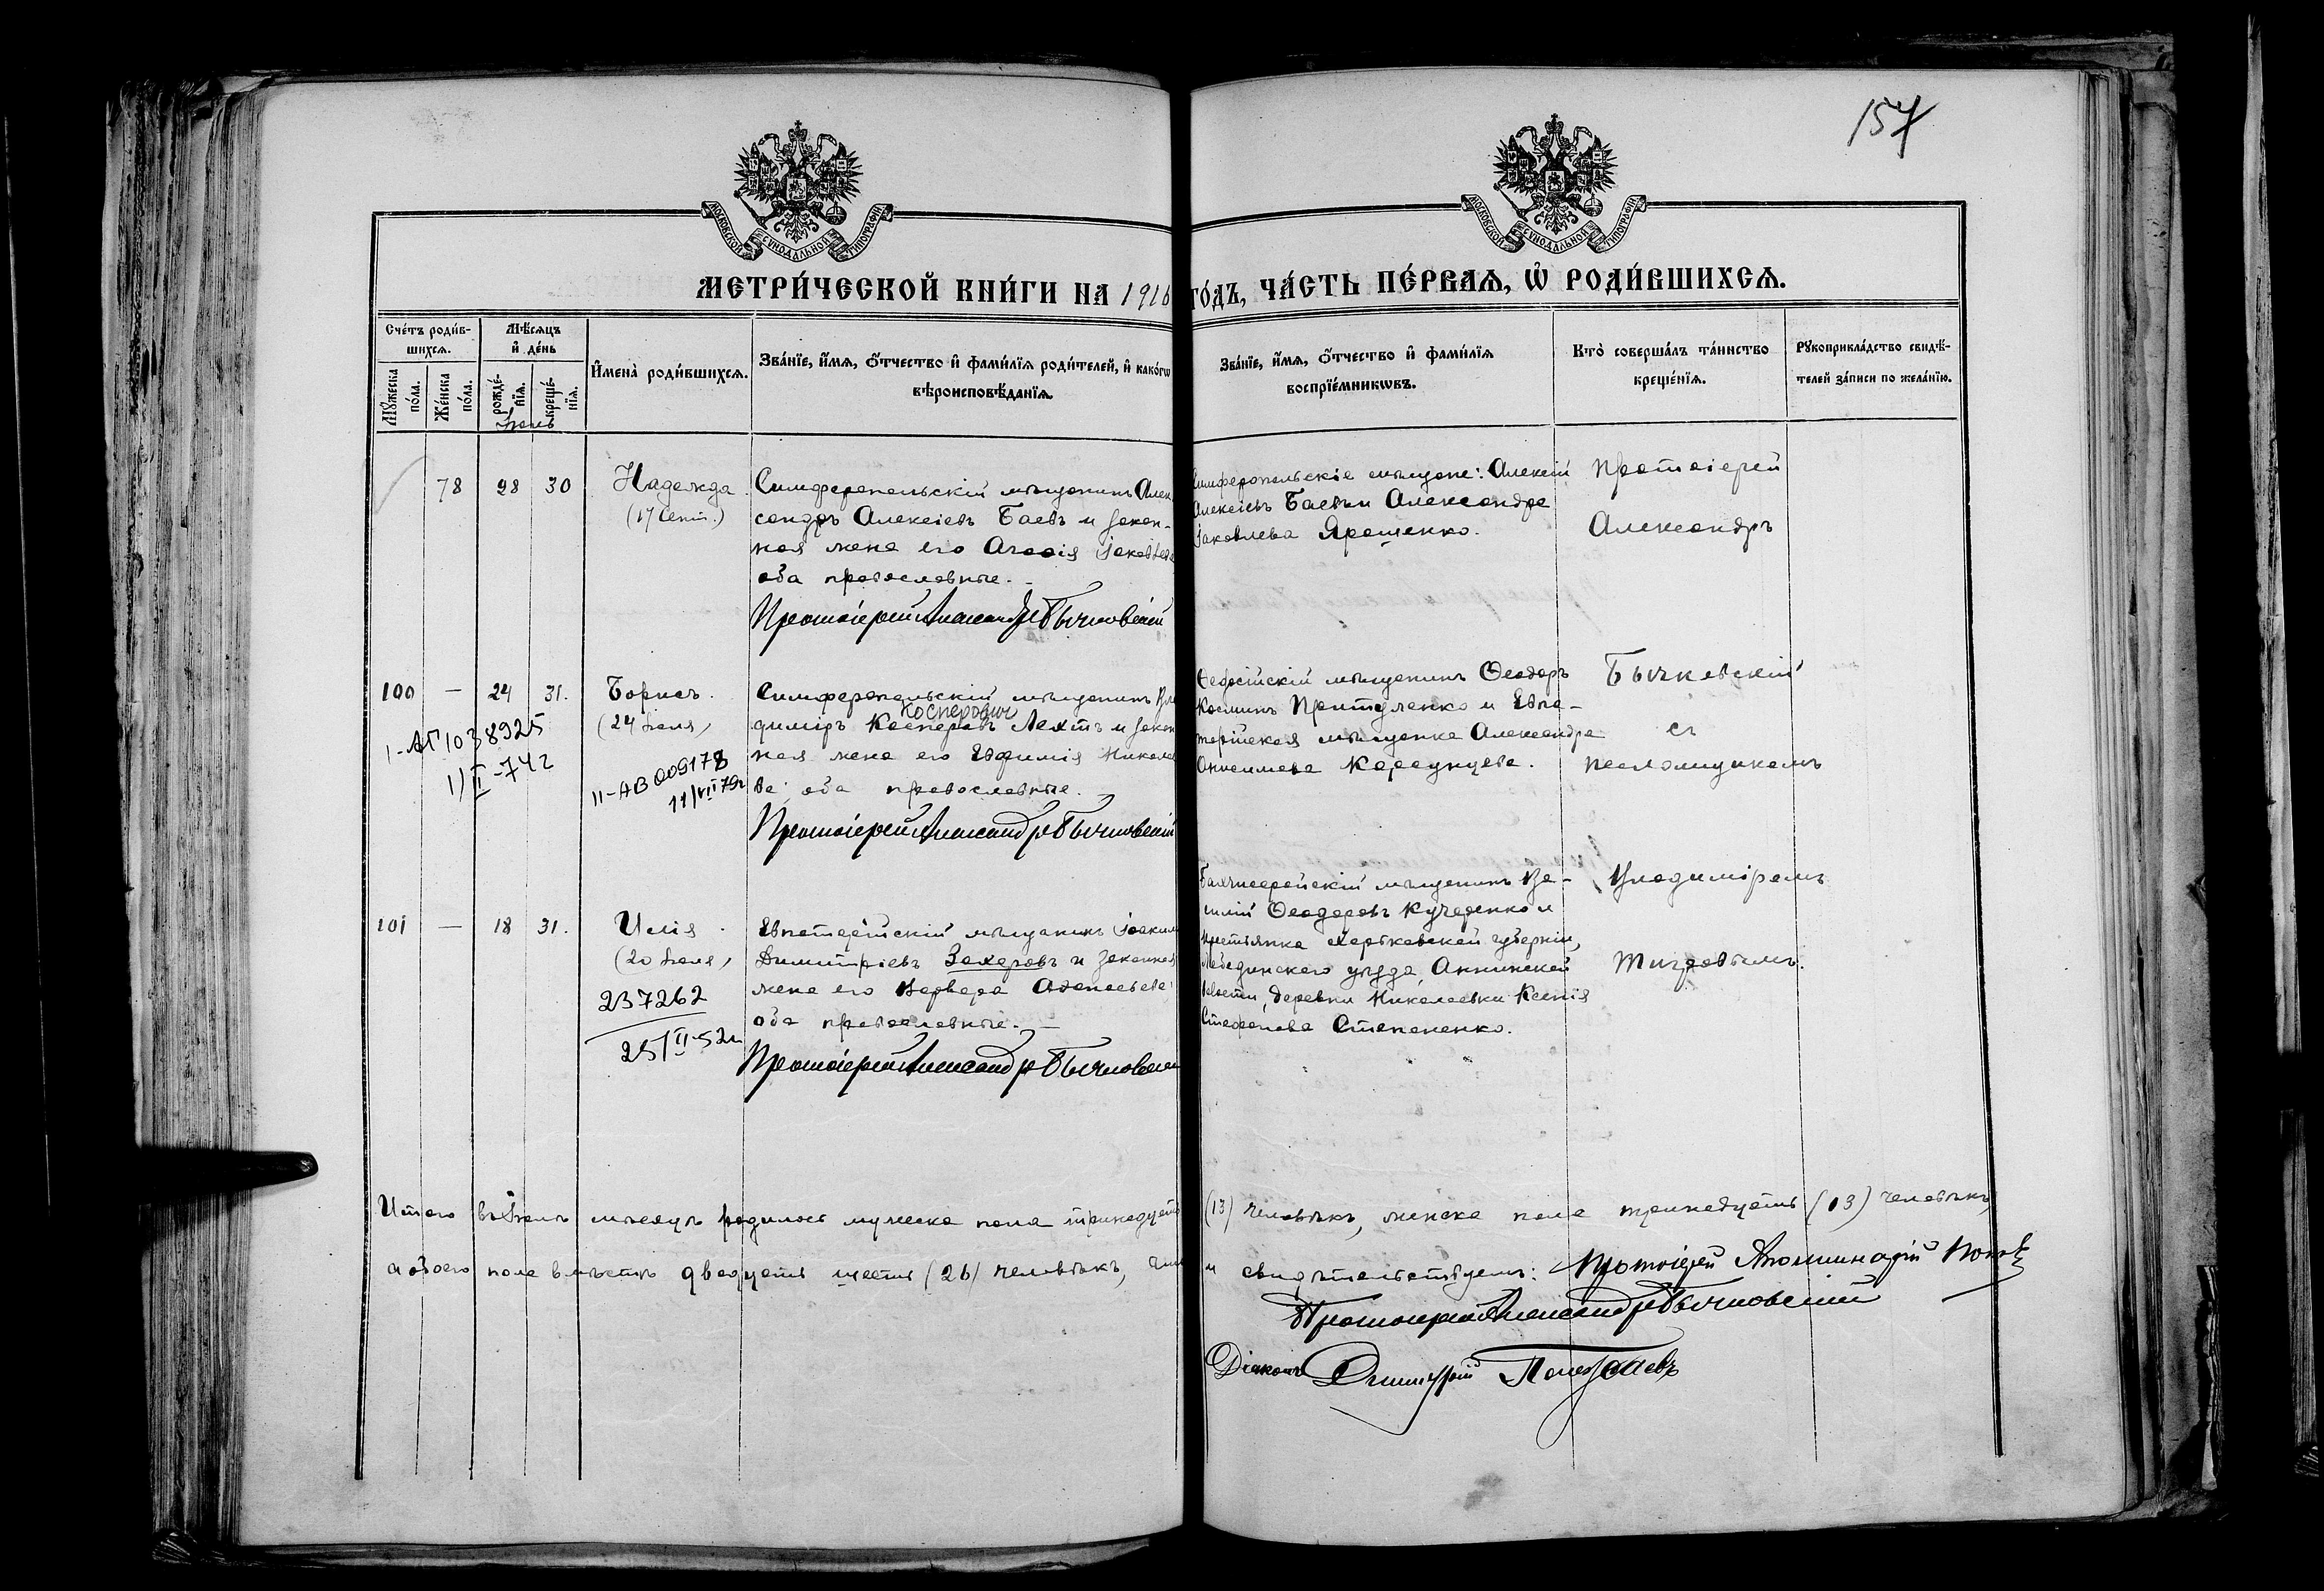 157
МОСКОВСКОЙ СѴНОДАЛЬНОЙ ТИПОГРАФІИ
МОСКОВСКОЙ СѴНОДАЛЬНОЙ ТИПОГРАФІИ
МЕТРИ́ЧЕСКОЙ КНИ́ГИ НА 1910 ГО́ДЪ, ЧА́СТЬ ПЕ́РВАЯ, Ѡ҆ РОДИ́ВШИХСЯ.
Сче́тъ роди́в-
шихся.
Мꙋ́жеска по́ла.
Же́нска по́ла.
Мѣ́сяцъ
и҆ де́нь
рожде́нїя.
креще́нїя.
Іюль
И҆мена̀ роди́вшихся.
Зва́нїе, и҆́мя, ѻ҆́тчество и҆ фами́лїя роди́телей, и҆ како́гѡ
вѣроисповѣ́данїя.
Зва́нїе, и҆́мя, ѻ҆́тчество и҆ фами́лїя
воспрїе́мникѡвъ.
Кто̀ соверша́лъ та́инство
креще́нїя.
Рꙋкоприкла́дство свидѣ́-
телей за́писи по жела́нїю.
78 28 30
Надежда
(17 Сент.)
Симферопольскій мѣщанинъ Алек-
сандръ Алексіевъ Баевъ и закон-
ная жена его Агафія Іаковлева
оба православные.
Протоіерей Александръ Бычковскій
Симферопольскіе мѣщане: Алексій
Алексіевъ Баевъ и Александра
Іаковлева Ярошенко.
Протоіерей
Александръ
100 — 24 31.
Борисъ.
(24 Іюля)
I-АГ 1038925
1/II-74г
II-АВ 009178
11/VII 79г
Симферопольскій мѣщанинъ Вла
Косперович
диміръ Косперовъ Лехтъ и закон
ная жена его Евфимія Николае
ва, оба православные.
Протоіерей Александръ Бычковскій
Ѳеодосійскій мѣщанинъ Ѳеодоръ
Козминъ Притуленко и Евпа-
торійская мѣщанка Александра
Онисимова Караунцева.
Бычковскій
съ
псаломщикомъ
101 — 18 31.
Илія
(20 Іюля)
237262
25/II-52г
Евпаторійскій мѣщанинъ Іоаким
Димитріевъ Захаровъ и законная
жена его Варвара Аѳанасьева
оба православные. —
Протоіерей Александръ Бычковскій
Бахчисарайскій мѣщанинъ Ва-
силій Ѳеодоровъ Кучеренко и
крестьянка Харьковской губерніи,
Лебединскаго уѣзда, Аннинской
волости, деревни Николаевки Ксенія
Стефанова Степаненко.
Владиміромъ
Тигровымъ.
Итого въ Іюлѣ мѣсяцѣ родилось мужеска пола тринадцать (13) человѣкъ, женска пола тринадцать (13) человѣкъ,
а обоего пола вмѣстѣ двадцать шесть (26) человѣкъ,
свидѣтельствуемъ: Протоіерей Аполлинарій
Протоіерей Александръ Бычковскій
Діаконъ Димитрій